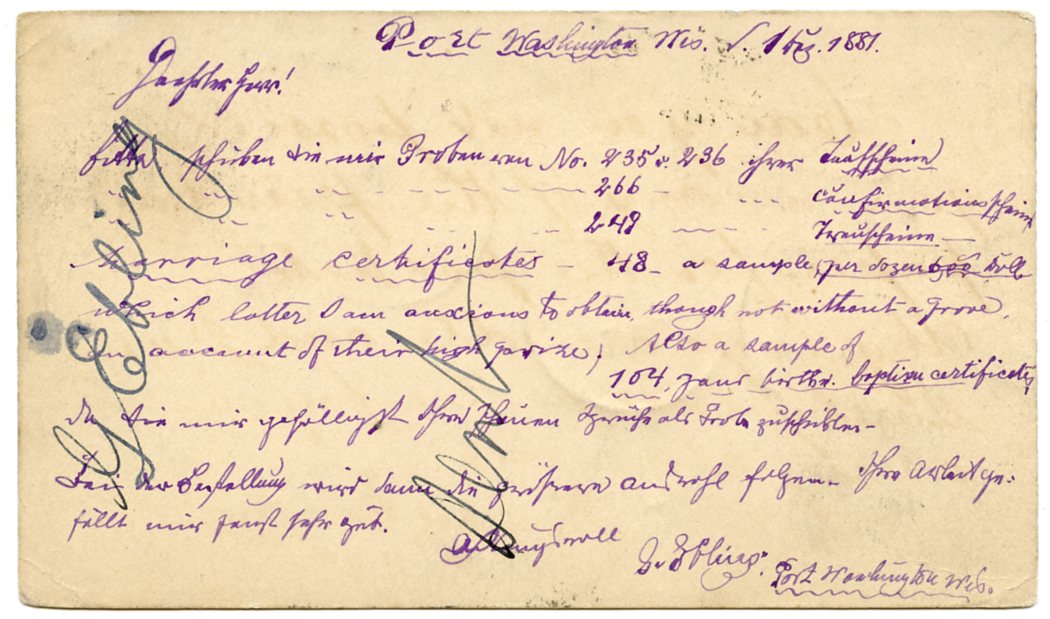 Port Washington Wis. d. 1 Dez. 1881.
Geehrter Herr!
Bitte schicken Sie mir Proben von No. 235 u. 236 ihrer Taufscheine
" " " 266 " " Confirmationsscheine
" " " 248 " " Trauscheine
Marriage certificates – 48 – a sample, per dozen
which latter I am anxious to obtain, though not without a prove,
on account of their high prize; Also a sample of
104, your birth & baptism certificates,
Sie mir gefälligst Ihre Sprüche als Probe
Bei der Bestellung wird dann die größere Auswahl folgen. Ihre Arbeit ge-
fällt mir sonst sehr gut.
Achtungsvoll
G. Ebling.
Port Washington Wis.
G Ebling
Sent